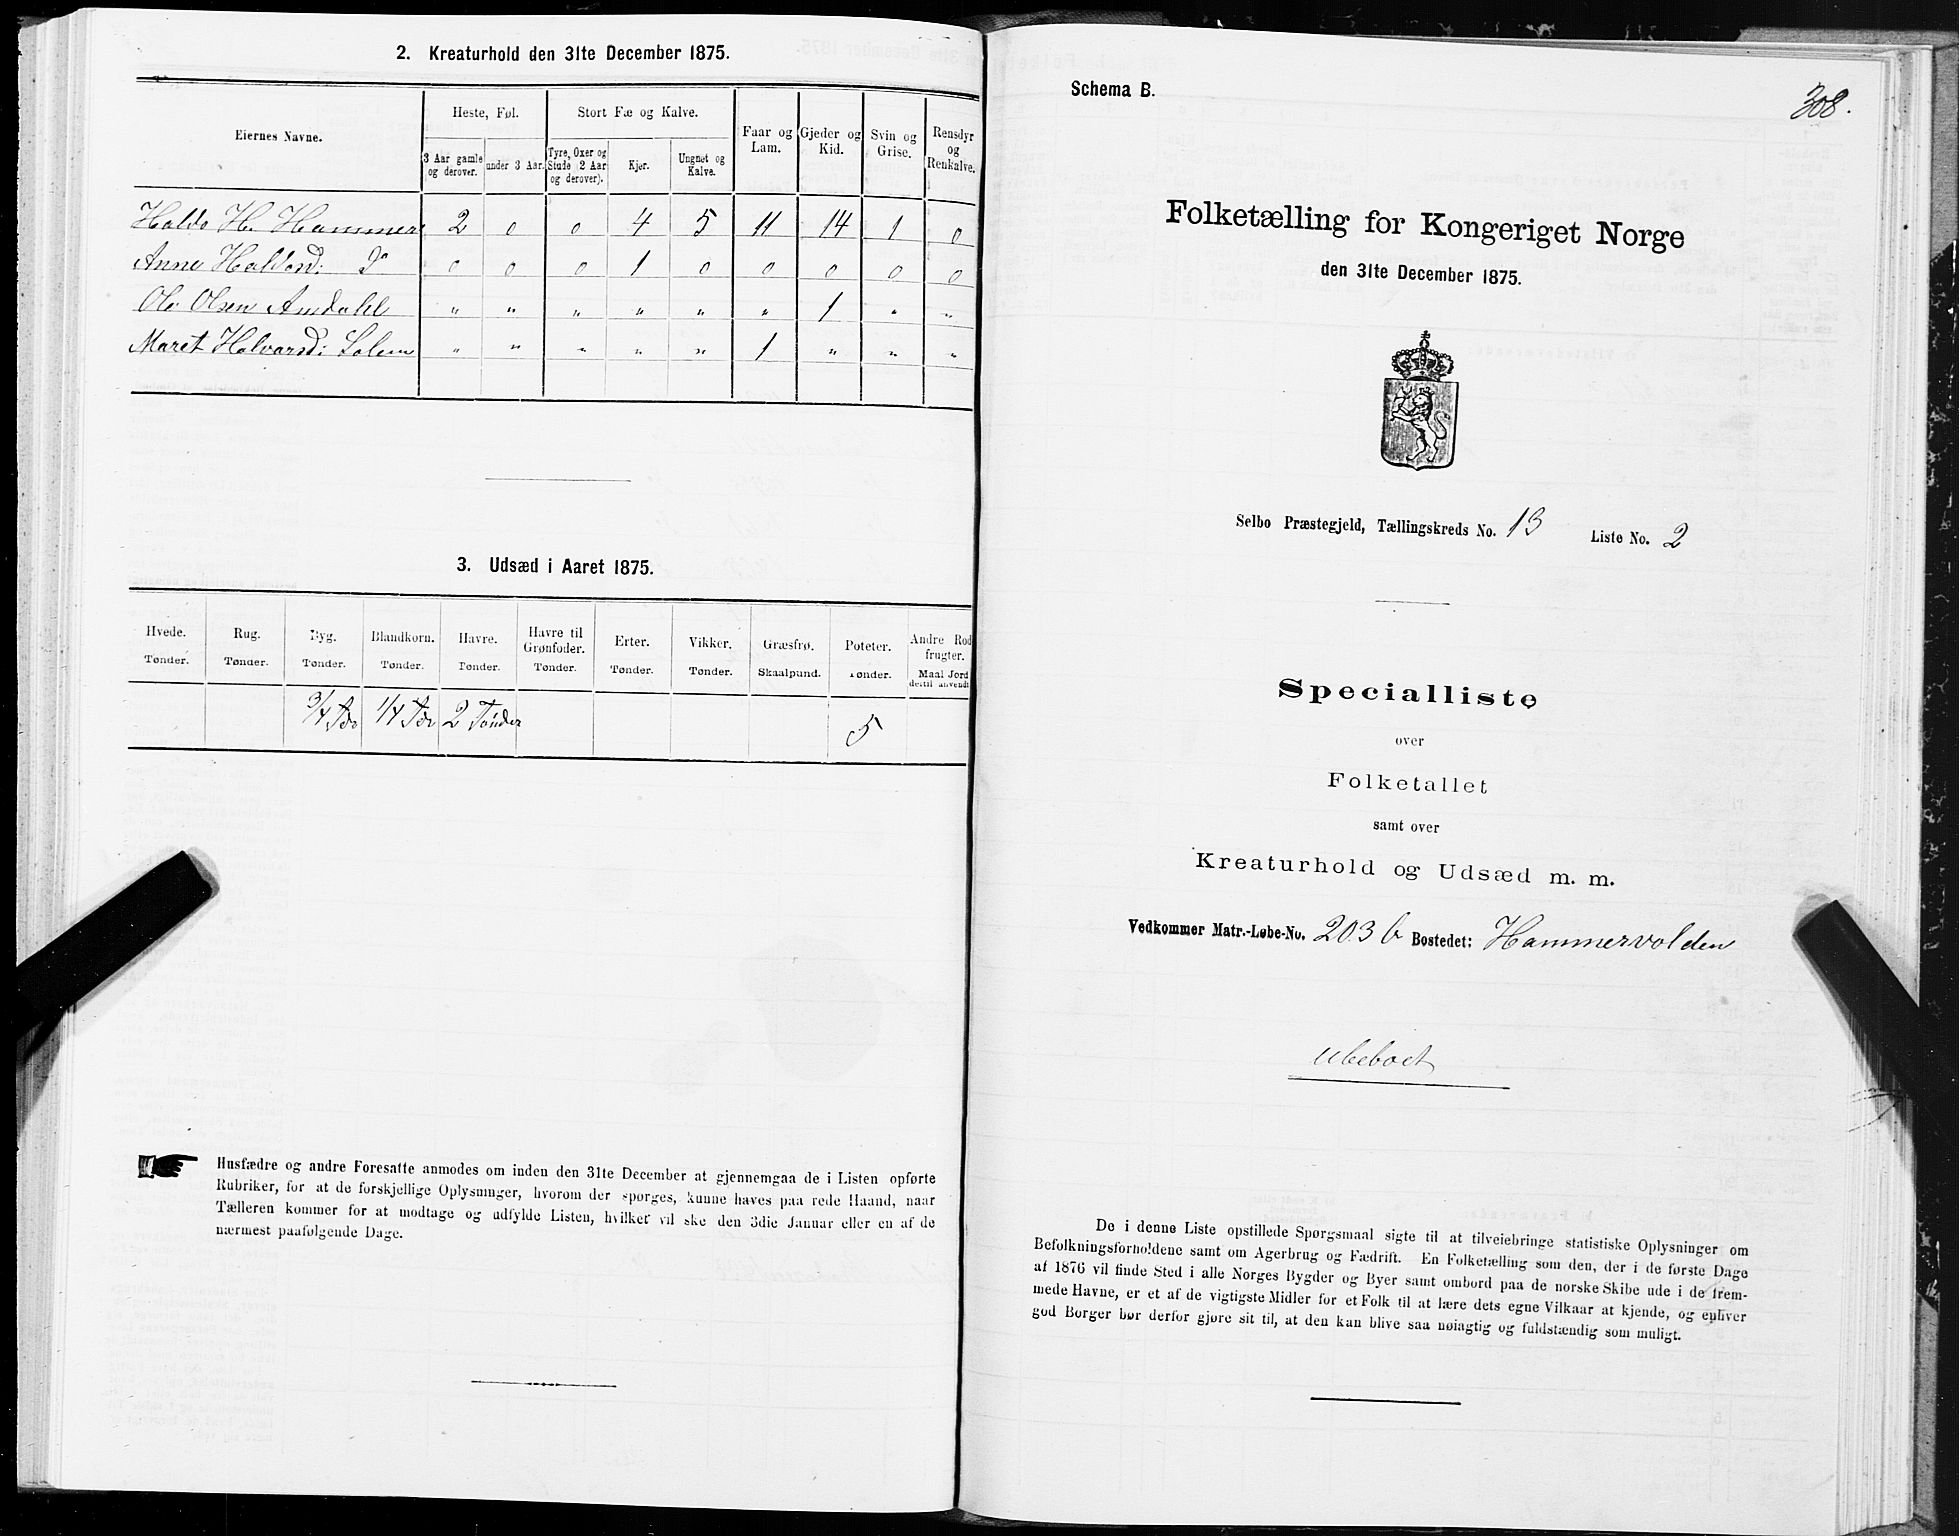 2. Kreaturhold den 31te December 1875.
Eiernes Navne. Heste, Føl. Stort Fæ og Kalve. Faar og Lam. Gjeder og Kid. Svin og Grise. Rensdyr og Renkalve.
3 Aar gamle og derover. under 3 Aar. Tyre, Oxer og Stude (2 Aar og derover). Kjør. Ungnet og Kalve.
Haldo H. Hammer 2 0 0 4 5 11 14 1 0
Anne Haldosd: Do 0 0 0 1 0 0 0 0 0
Ole Olsen Amdahl " " " " " " 1 " "
Maret Halvorsd: Solem " " " " " 1 " " "
3. Udsæd i Aaret 1875.
Hvede. Rug. Byg. Blandkorn. Havre. Havre til Grønfoder. Erter. Vikker. Græsfrø. Poteter. Andre Rodfrugter.
Tønder. Tønder. Tønder. Tønder. Tønder. Tønder. Tønder. Tønder. Skaalpund. Tønder. Maal Jord dertil anvendt.
3/4 Tør 1/4 Tør 2 Tønder 5
Husfædre og andre Foresatte anmodes om inden den 31te December at gjennemgaa de i Listen opførte
Rubriker, for at de forskjellige Oplysninger, hvorom der spørges, kunne haves paa rede Haand, naar
Tælleren kommer for at modtage og udfylde Listen, hvilket vil ske den 3die Januar eller en af de
nærmest paafølgende Dage.
Schema B.
308.
Folketælling for Kongeriget Norge
den 31te December 1875.
Selbo Præstegjeld, Tællingskreds No. 13 Liste No. 2
Specialliste
over
Folketallet
samt over
Kreaturhold og Udsæd m. m.
Vedkommer Matr.-Løbe-No. 203 b Bostedet: Hammervolden
Ubeboet
De i denne Liste opstillede Spørgsmaal sigte til at tilveiebringe statistiske Oplysninger om
Befolkningsforholdene samt om Agerbrug og Fædrift. En Folketælling som den, der i de første Dage
af 1876 vil finde Sted i alle Norges Bygder og Byer samt ombord paa de norske Skibe ude i de frem-
mede Havne, er et af de vigtigste Midler for et Folk til at lære dets egne Vilkaar at kjende, og enhver
god Borger bør derfor gjøre sit til, at den kan blive saa nøiagtig og fuldstændig som muligt.